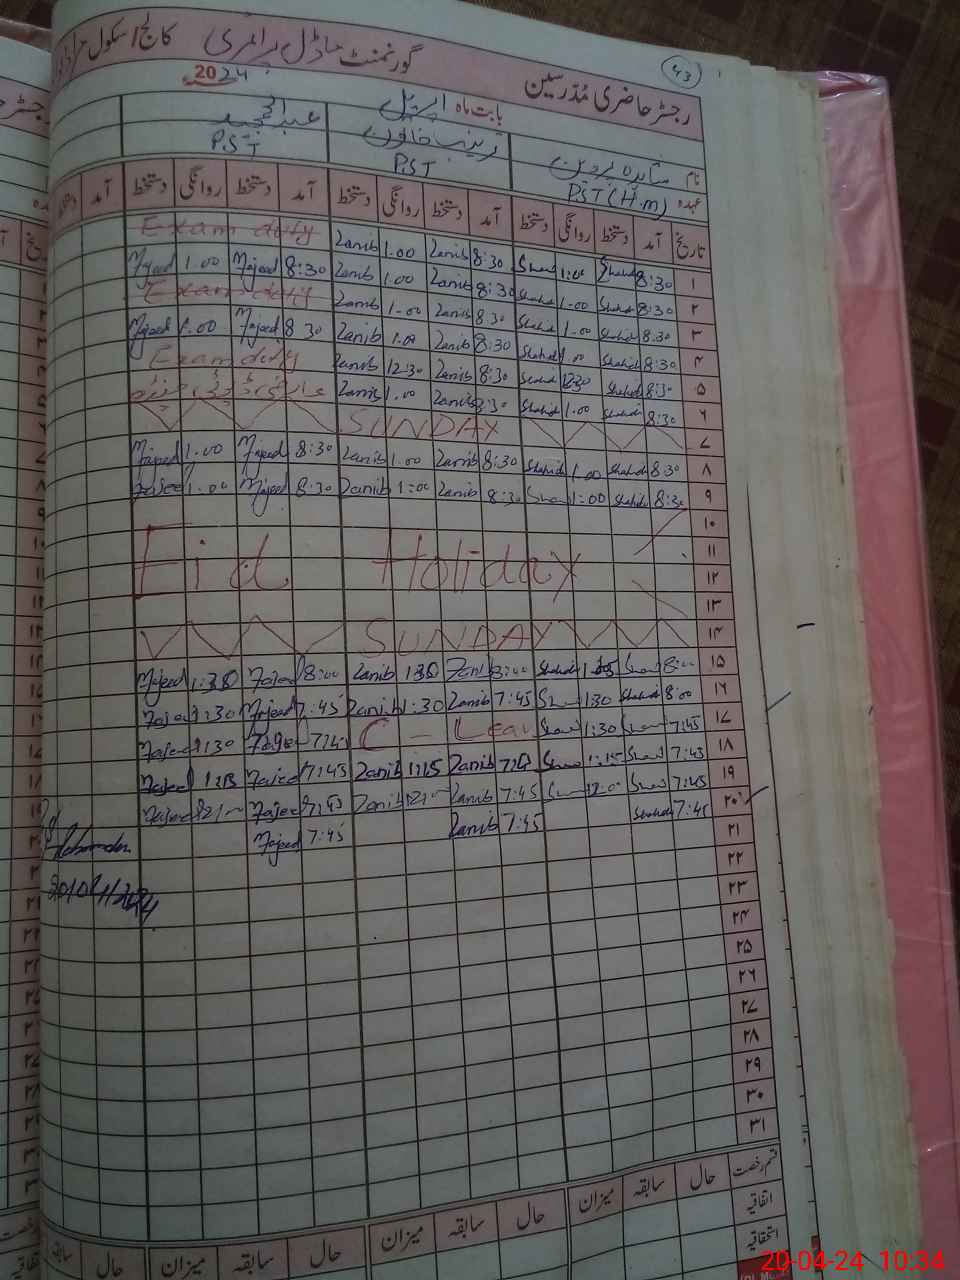 رجسٹر حاضری مدرسین گورنمنٹ ماڈل پرائمری کالج / سکول
43
بابت ماہ اپریل 2024
نام شاہدہ پروین زینب خاتون عبدالمجید
عہدہ PST (H.m) PST PST
تاریخ آمد دستخط روانگی دستخط آمد دستخط روانگی دستخط آمد دستخط روانگی دستخط آمد
۱ 8:30 Shahid 1:00 8:30 Zanib 1.00 Zanib Exam duty
۲ 8:30 Shahid 1.00 Shahid 8:30 Zanib 1.00 Zanib 8:30 Majeed 1.00 Majeed
۳ 8.30 Shahid 1.00 Shahid 8.30 Zanib 1.00 Zanib Exam duty
۴ 8:30 Shahid 1.00 Shahid 8:30 Zanib 1.00 Zanib 8 30 Majeed 1.00 Majeed
۵ 8:30 Shahid 12:30 8:30 Zanib 12:30 Zanib Exam duty
۶ 8:30 Shahid 1.00 Shahid 8:30 Zanib 1.00 Zanib
۷ SUNDAY
۸ 8:30 Shahid 1.00 Shahid 8:30 Zanib 1.00 Zanib 8:30 Majeed 1.00 Majeed
۹ 8:30 Shahid 1:00 8:30 Zanib 1:00 Zanib 8:30 Majeed 1.00 Majeed
۱۰
۱۱ Eid Holiday
۱۲
۱۳
۱۴ SUNDAY
۱۵ 8:00 Shahid 8:00 Zanib 1:30 Zanib 8:00 Majeed 1:30 Majeed
۱۶ 8:00 Shahid 1:30 7:45 Zanib 1:30 Zanib 7:45 Majeed 1:30 Majeed
۱۷ 7:45 1:30 C - Leav 7:45 Majeed 1:30 Majeed
۱۸ 7:45 1:15 7:45 Zanib 1:15 Zanib 7:45 Majeed 1:15 Majeed
۱۹ 7:45 12:00 7:45 Zanib 12:00 Zanib 7:45 Majeed 12:00 Majeed
۲۰ 7:45 Shahid 7:45 Zanib 7:45 Majeed
۲۱
۲۲
۲۳
۲۴
۲۵
۲۶
۲۷
۲۸
۲۹
۳۰
۳۱
20/04/2024
قسم رخصت حال سابقہ میزان حال سابقہ میزان حال سابقہ میزان حال سابقہ
اتفاقیہ
استحقاقیہ
20-04-24 10:34